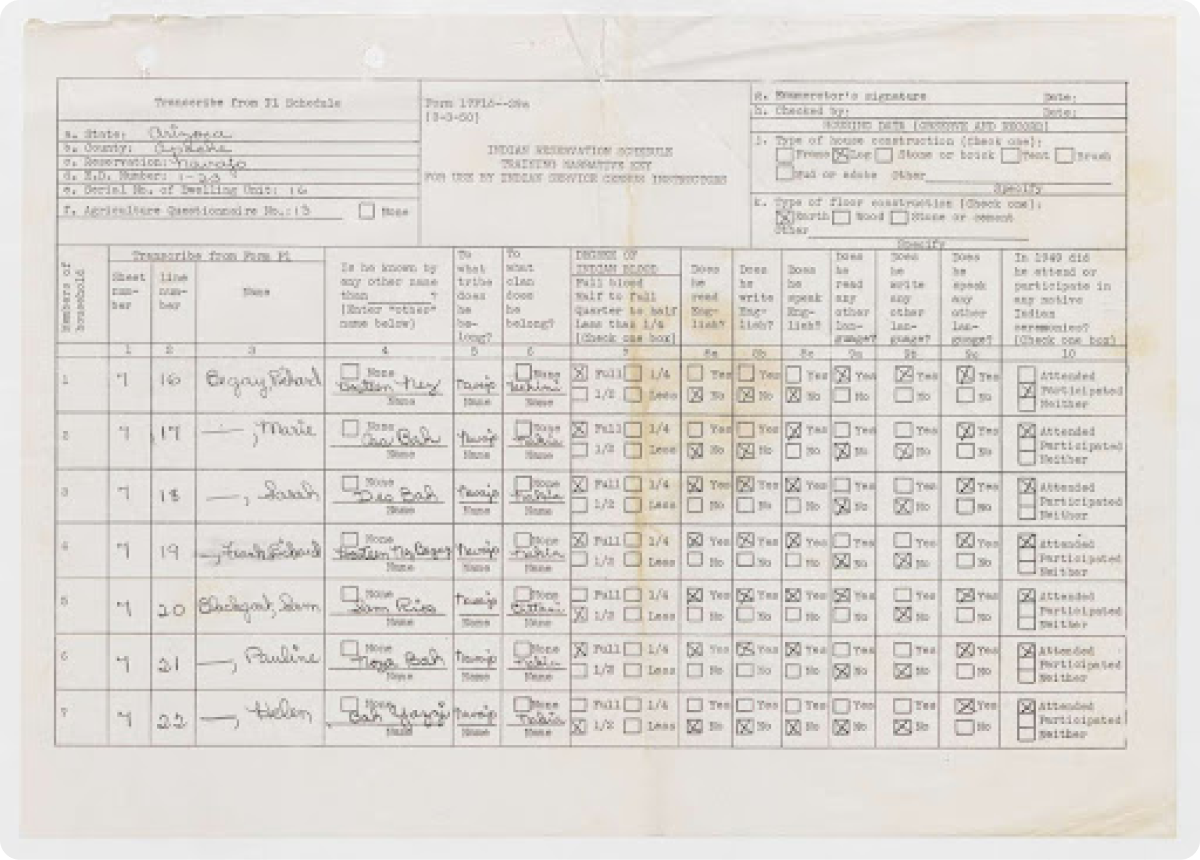 Transcribe from P1 Schedule
a. State: Arizona
b. County: Apache
c. Reservation: Navajo
d. E.D. Number: 1-23
e. Serial No. of Dwelling Unit: 16
f. Agriculture Questionnaire No.: 13 None
[3-3-50]
INDIAN RESERVATION SCHEDULE
TRAINING NARRATIVE KEY
FOR USE BY INDIAN SERVICE CENSUS INSTRUCTORS
g. Enumerator's signature Date:
h. Checked by: Date:
HOUSING DATA [OBSERVE AND RECORD]
Type of house construction [Check one]:
Frame Log Stone or brick Tent Brush
Mud or adobe Other
Specify
k. Type of floor construction [Check one]:
Earth Wood Stone or cement
Other
Specify
Members of household
Transcribe from Form P1
Sheet number
line number
Name
Is he known by any other name than ? [Enter "other" name below]
To what tribe does he belong?
To what clan does he belong?
DEGREE OF INDIAN BLOOD
Full blood
Half to full
Quarter to half
Less than 1/4
[Check one box]
Does he read English?
Does he write English?
Does he speak English?
Does he read any other language?
Does he write any other language?
Does he speak any other language?
In 1949 did he attend or participate in any native Indian ceremonies? [Check one box]
1 2 3 4 5 6 7 8a 8b 8c 9a 9b 9c 10
1 7 16 Begay, Richard None Hosteen Nez Name Navajo Name None Name X Full 1/4 1/2 Less Yes X No Yes X No Yes X No X Yes No X Yes No X Yes No Attended X Participated Neither
2 7 17 —, Marie None Bah Name Navajo Name None Name X Full 1/4 1/2 Less Yes X No Yes X No X Yes No Yes X No Yes X No X Yes No X Attended Participated Neither
3 7 18 —, Sarah None Bah Name Navajo Name None Name X Full 1/4 1/2 Less X Yes No X Yes No X Yes No Yes X No Yes X No X Yes No X Attended Participated Neither
4 7 19 —, Frank Richard None Hosteen Nez Begay Name Navajo Name None Name X Full 1/4 1/2 Less X Yes No X Yes No X Yes No Yes X No Yes X No X Yes No X Attended Participated Neither
5 7 20 Blackgoat, Sam None Sam Name Navajo Name None Name Full 1/4 X 1/2 Less X Yes No X Yes No X Yes No X Yes No Yes X No X Yes No X Attended Participated Neither
6 7 21 —, Pauline None Bah Name Navajo Name None Name X Full 1/4 1/2 Less X Yes No X Yes No X Yes No Yes X No Yes X No X Yes No X Attended Participated Neither
7 7 22 —, Helen None Bah Yazzi Name Navajo Name None Name Full 1/4 X 1/2 Less Yes X No Yes X No Yes X No Yes X No Yes X No X Yes No X Attended Participated Neither